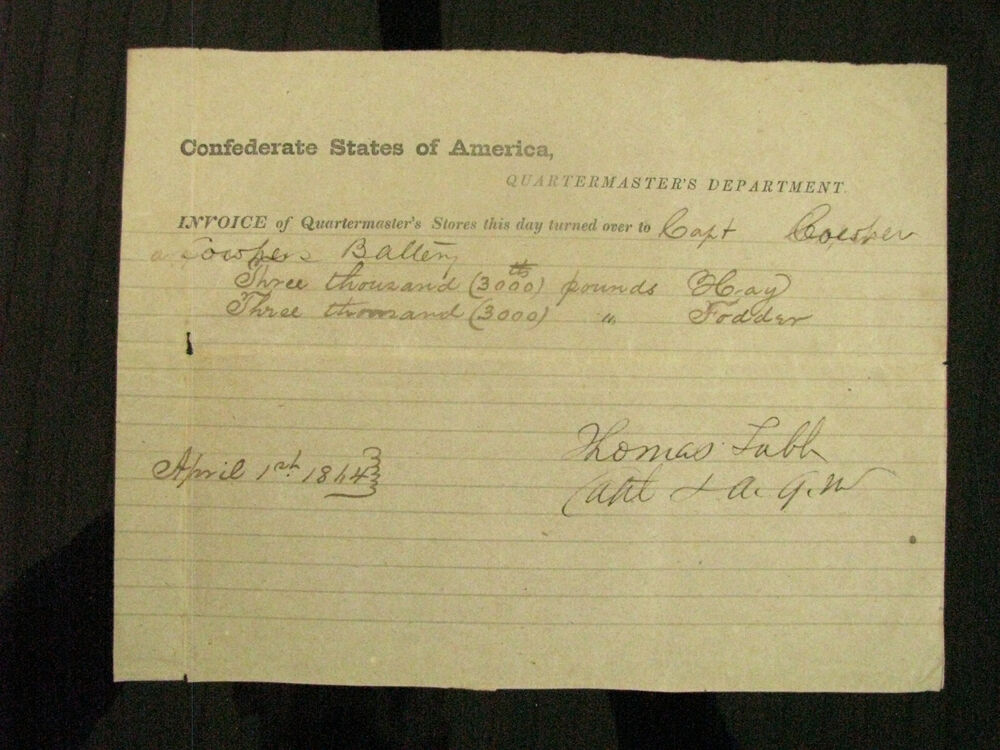 Confederate States of America,
QUARTERMASTER'S DEPARTMENT.
INVOICE of Quartermaster's Stores this day turned over to Capt Cooper
Coopers Battery
Three thousand (3000) pounds Hay
Three thousand (3000) " Fodder
Thomas Tabb
Capt & A. Q. M
April 1st 1864